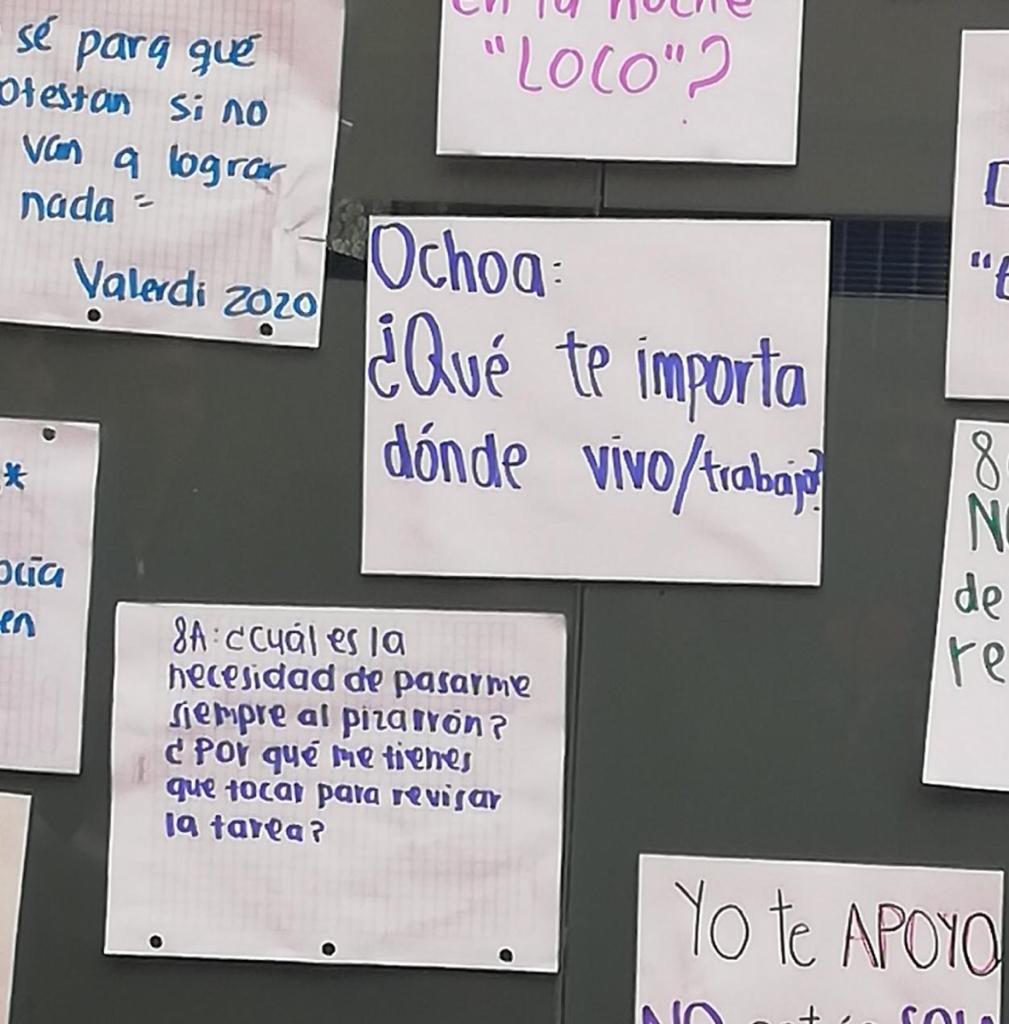 sé para qué
van a lograr
si no
nada =
Valerdi 2020
"LOCO"?
Ochoa:
¿Qué te importa
dónde vivo/trabajo?
*
en
8A: ¿Cuál es la
necesidad de pasarme
siempre al pizarrón?
¿Por qué me tienes
que tocar para revisar
la tarea?
8
de
Yo te APOYO
NO